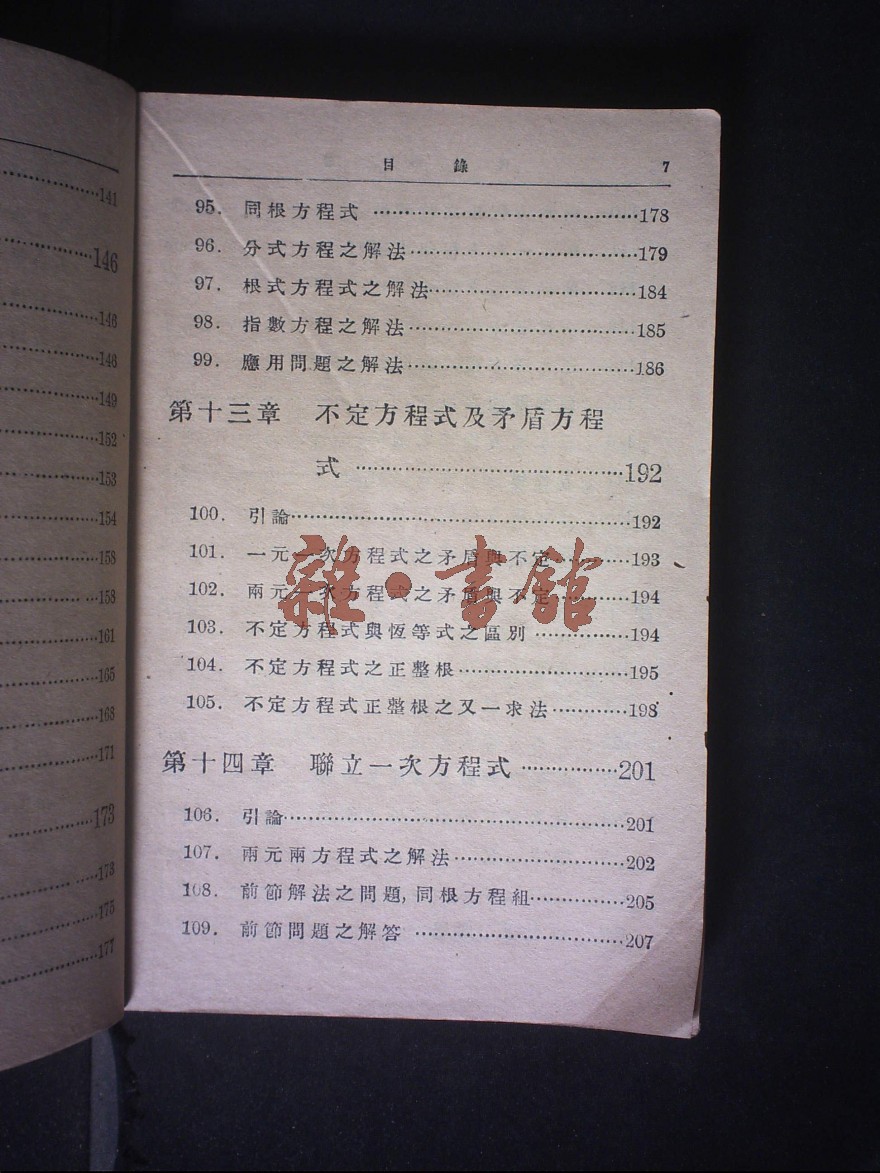 141
146
146
146
149
152
153
154
158
158
161
165
168
171
173
173
175
177
目錄 7
95. 同根方程式 178
96. 分式方程之解法 179
97. 根式方程式之解法 184
98. 指數方程之解法 185
99. 應用問題之解法 186
第十三章 不定方程式及矛盾方程
式 192
100. 引論 192
101. 一元一次方程式之矛盾與不定 193
102. 兩元一次方程式之矛盾與不定 194
103. 不定方程式與恆等式之區別 194
104. 不定方程式之正整根 195
105. 不定方程式正整根之又一求法 198
第十四章 聯立一次方程式 201
106. 引論 201
107. 兩元兩方程式之解法 202
108. 前節解法之問題, 同根方程組 205
109. 前節問題之解答 207
雜·書館